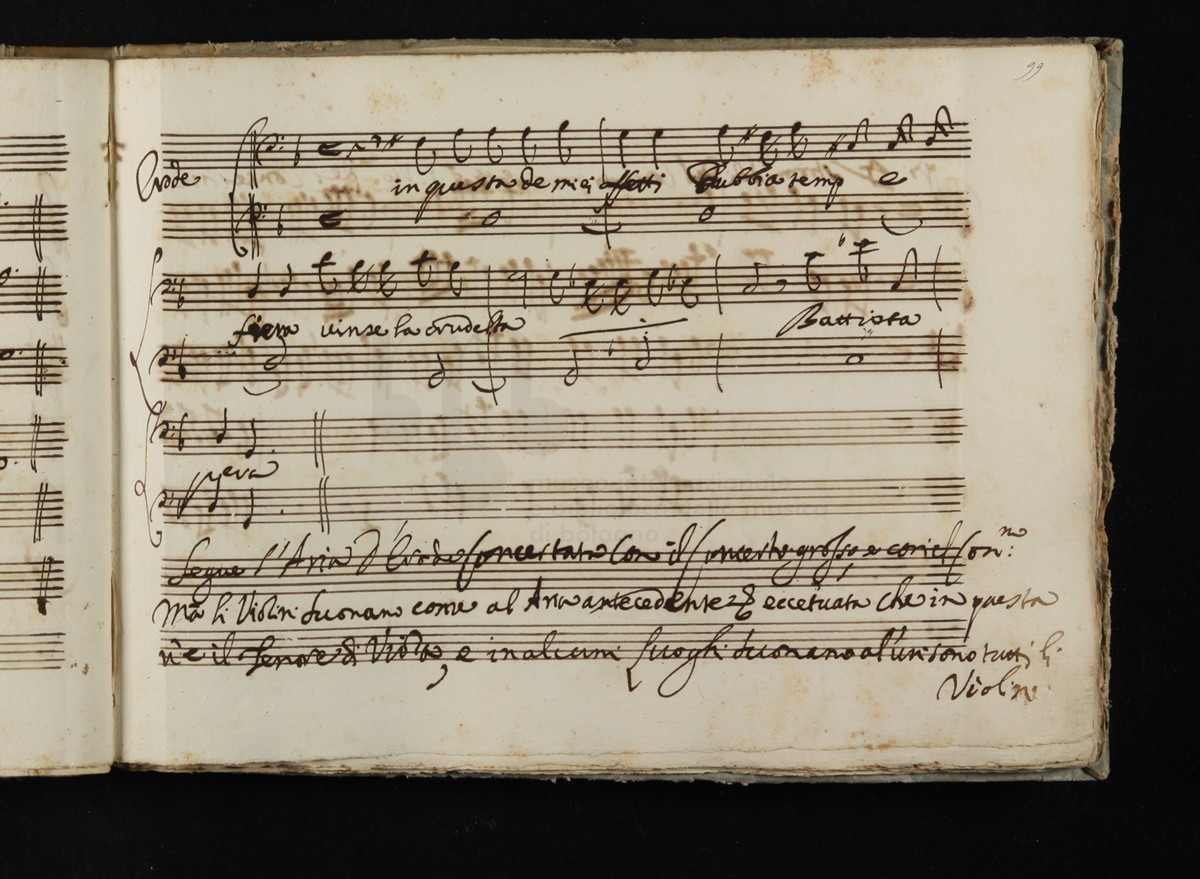 99
Erode
in questa de miei affetti Dubbia temp e
fiera vinse la crudeltà Battista
pera
Segue l'Aria d'Erode Concertata con il Concerto grosso, e con il Con:no
Mà li Violini suonano come al Aria antecedente eccetuata che in questa
v'è il Tenore di Viola, e in alcuni luoghi suonano al'unisono tutti li
Violini